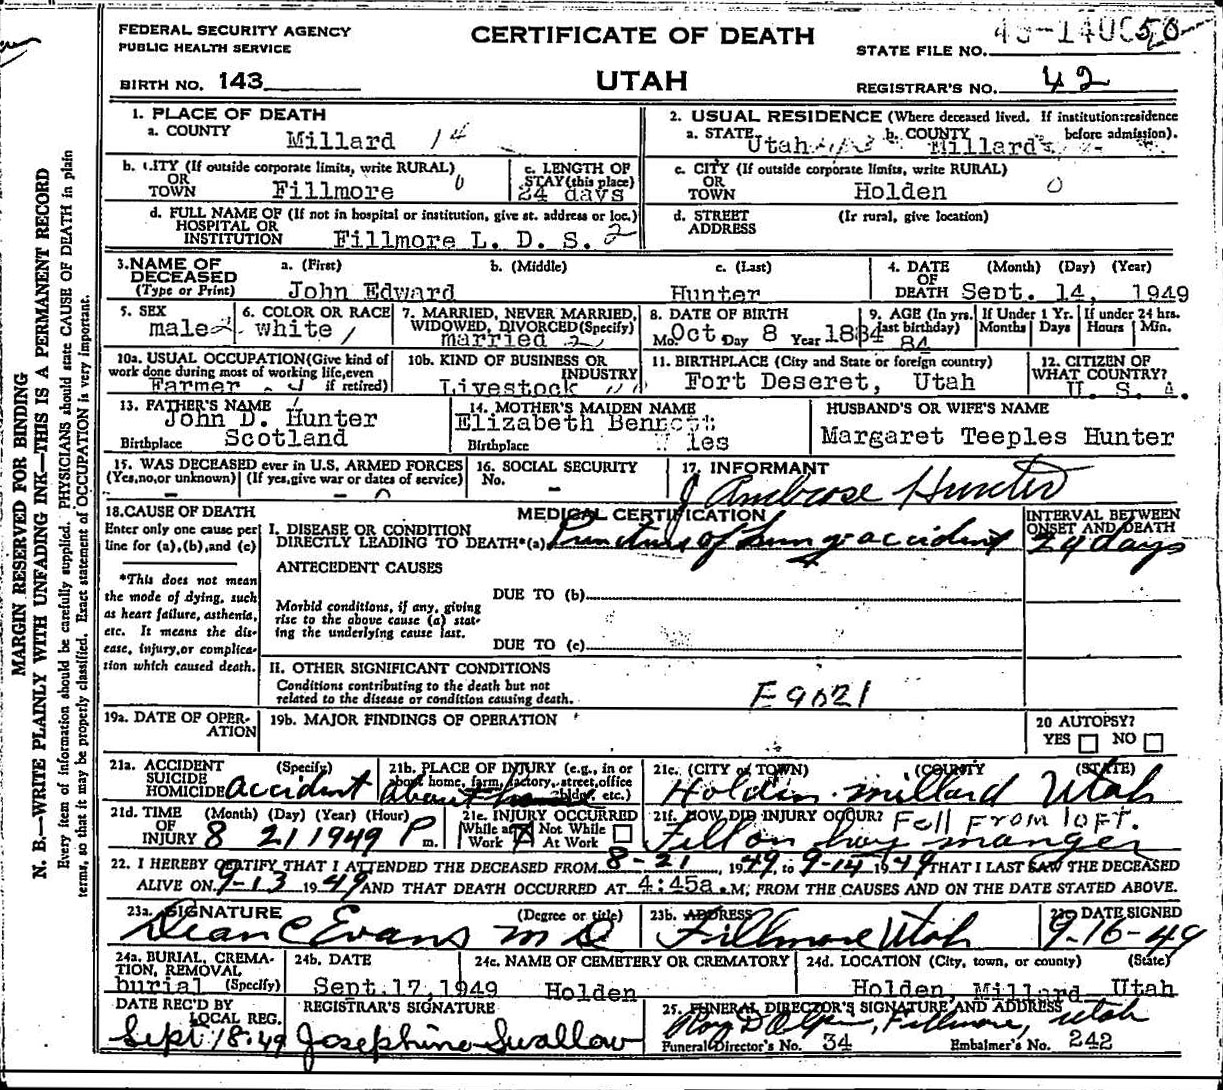 FEDERAL SECURITY AGENCY
PUBLIC HEALTH SERVICE
CERTIFICATE OF DEATH
STATE FILE NO.
BIRTH NO. 143
UTAH
REGISTRAR'S NO. 42
1. PLACE OF DEATH
a. COUNTY
Millard 14
2. USUAL RESIDENCE (Where deceased lived. If institution:residence before admission).
a. STATE Utah b. COUNTY Millard
b. CITY (If outside corporate limits, write RURAL)
OR
TOWN Fillmore 0
c. LENGTH OF
STAY (this place)
24 days
c. CITY (If outside corporate limits, write RURAL)
OR
TOWN Holden 0
d. FULL NAME OF (If not in hospital or institution, give st. address or loc.)
HOSPITAL OR
INSTITUTION Fillmore L. D. S. 2
d. STREET (If rural, give location)
ADDRESS
3. NAME OF
DECEASED
(Type or Print)
a. (First) b. (Middle) c. (Last)
John Edward Hunter
4. DATE (Month) (Day) (Year)
OF
DEATH Sept. 14, 1949
5. SEX
male 2
6. COLOR OR RACE
white 1
7. MARRIED, NEVER MARRIED,
WIDOWED, DIVORCED (Specify)
married 2
8. DATE OF BIRTH
Mo. Oct Day 8 Year 1884
9. AGE (In yrs. last birthday)
84
If Under 1 Yr.
Months Days
If under 24 hrs.
Hours Min.
10a. USUAL OCCUPATION (Give kind of
work done during most of working life, even
if retired)
Farmer
10b. KIND OF BUSINESS OR
INDUSTRY
Livestock
11. BIRTHPLACE (City and State or foreign country)
Fort Deseret, Utah
12. CITIZEN OF
WHAT COUNTRY?
U. S. A.
13. FATHER'S NAME
John D. Hunter
Birthplace Scotland
14. MOTHER'S MAIDEN NAME
Elizabeth Bennett
Birthplace
HUSBAND'S OR WIFE'S NAME
Margaret Teeples Hunter
15. WAS DECEASED ever in U.S. ARMED FORCES
(Yes, no, or unknown) (If yes, give war or dates of service)
– – 0
16. SOCIAL SECURITY
No. –
17. INFORMANT
J Ambrose Hunter
18. CAUSE OF DEATH
Enter only one cause per
line for (a), (b), and (c)
*This does not mean
the mode of dying, such
as heart failure, asthenia,
etc. It means the dis-
ease, injury, or complica-
tion which caused death.
MEDICAL CERTIFICATION
I. DISEASE OR CONDITION
DIRECTLY LEADING TO DEATH*(a) of lung accident
INTERVAL BETWEEN
ONSET AND DEATH
24 days
ANTECEDENT CAUSES
DUE TO (b)
Morbid conditions, if any, giving
rise to the above cause (a) stat-
ing the underlying cause last.
DUE TO (c)
II. OTHER SIGNIFICANT CONDITIONS
Conditions contributing to the death but not
related to the disease or condition causing death.
E9021
19a. DATE OF OPER-
ATION
19b. MAJOR FINDINGS OF OPERATION
20 AUTOPSY?
YES NO
21a. ACCIDENT (Specify)
SUICIDE
HOMICIDE accident
21b. PLACE OF INJURY (e.g., in or
about home, farm, factory, street, office
bldg., etc.)
about home
21c. (CITY or TOWN) (COUNTY) (STATE)
Holden Millard Utah
21d. TIME (Month) (Day) (Year) (Hour)
OF
INJURY 8 21 1949 P m.
21e. INJURY OCCURRED
While at Work Not While At Work
21f. HOW DID INJURY OCCUR? FELL FROM 10 FT.
Fell on hay manger
22. I HEREBY CERTIFY THAT I ATTENDED THE DECEASED FROM 8-21, 1949, to 9-14 1949 THAT I LAST SAW THE DECEASED
ALIVE ON 9-13 1949 AND THAT DEATH OCCURRED AT 4:45a.M; FROM THE CAUSES AND ON THE DATE STATED ABOVE.
23a. SIGNATURE (Degree or title)
Dean C Evans M D
23b. ADDRESS
Fillmore Utah
23c DATE SIGNED
9-16-49
24a. BURIAL, CREMA-
TION, REMOVAL
burial (Specify)
24b. DATE
Sept. 17, 1949
24c. NAME OF CEMETERY OR CREMATORY
Holden
24d. LOCATION (City, town, or county) (State)
Holden, Millard Utah
DATE REC'D BY
LOCAL REG.
Sept 18-49
REGISTRAR'S SIGNATURE
Josephine Swallow
25. FUNERAL DIRECTOR'S SIGNATURE AND ADDRESS
Fillmore, Utah
Funeral Director's No. 34 Embalmer's No. 242
MARGIN RESERVED FOR BINDING
N. B.—WRITE PLAINLY WITH UNFADING INK—THIS IS A PERMANENT RECORD
Every item of information should be carefully supplied. PHYSICIANS should state CAUSE OF DEATH in plain
terms, so that it may be properly classified. Exact statement of OCCUPATION is very important.